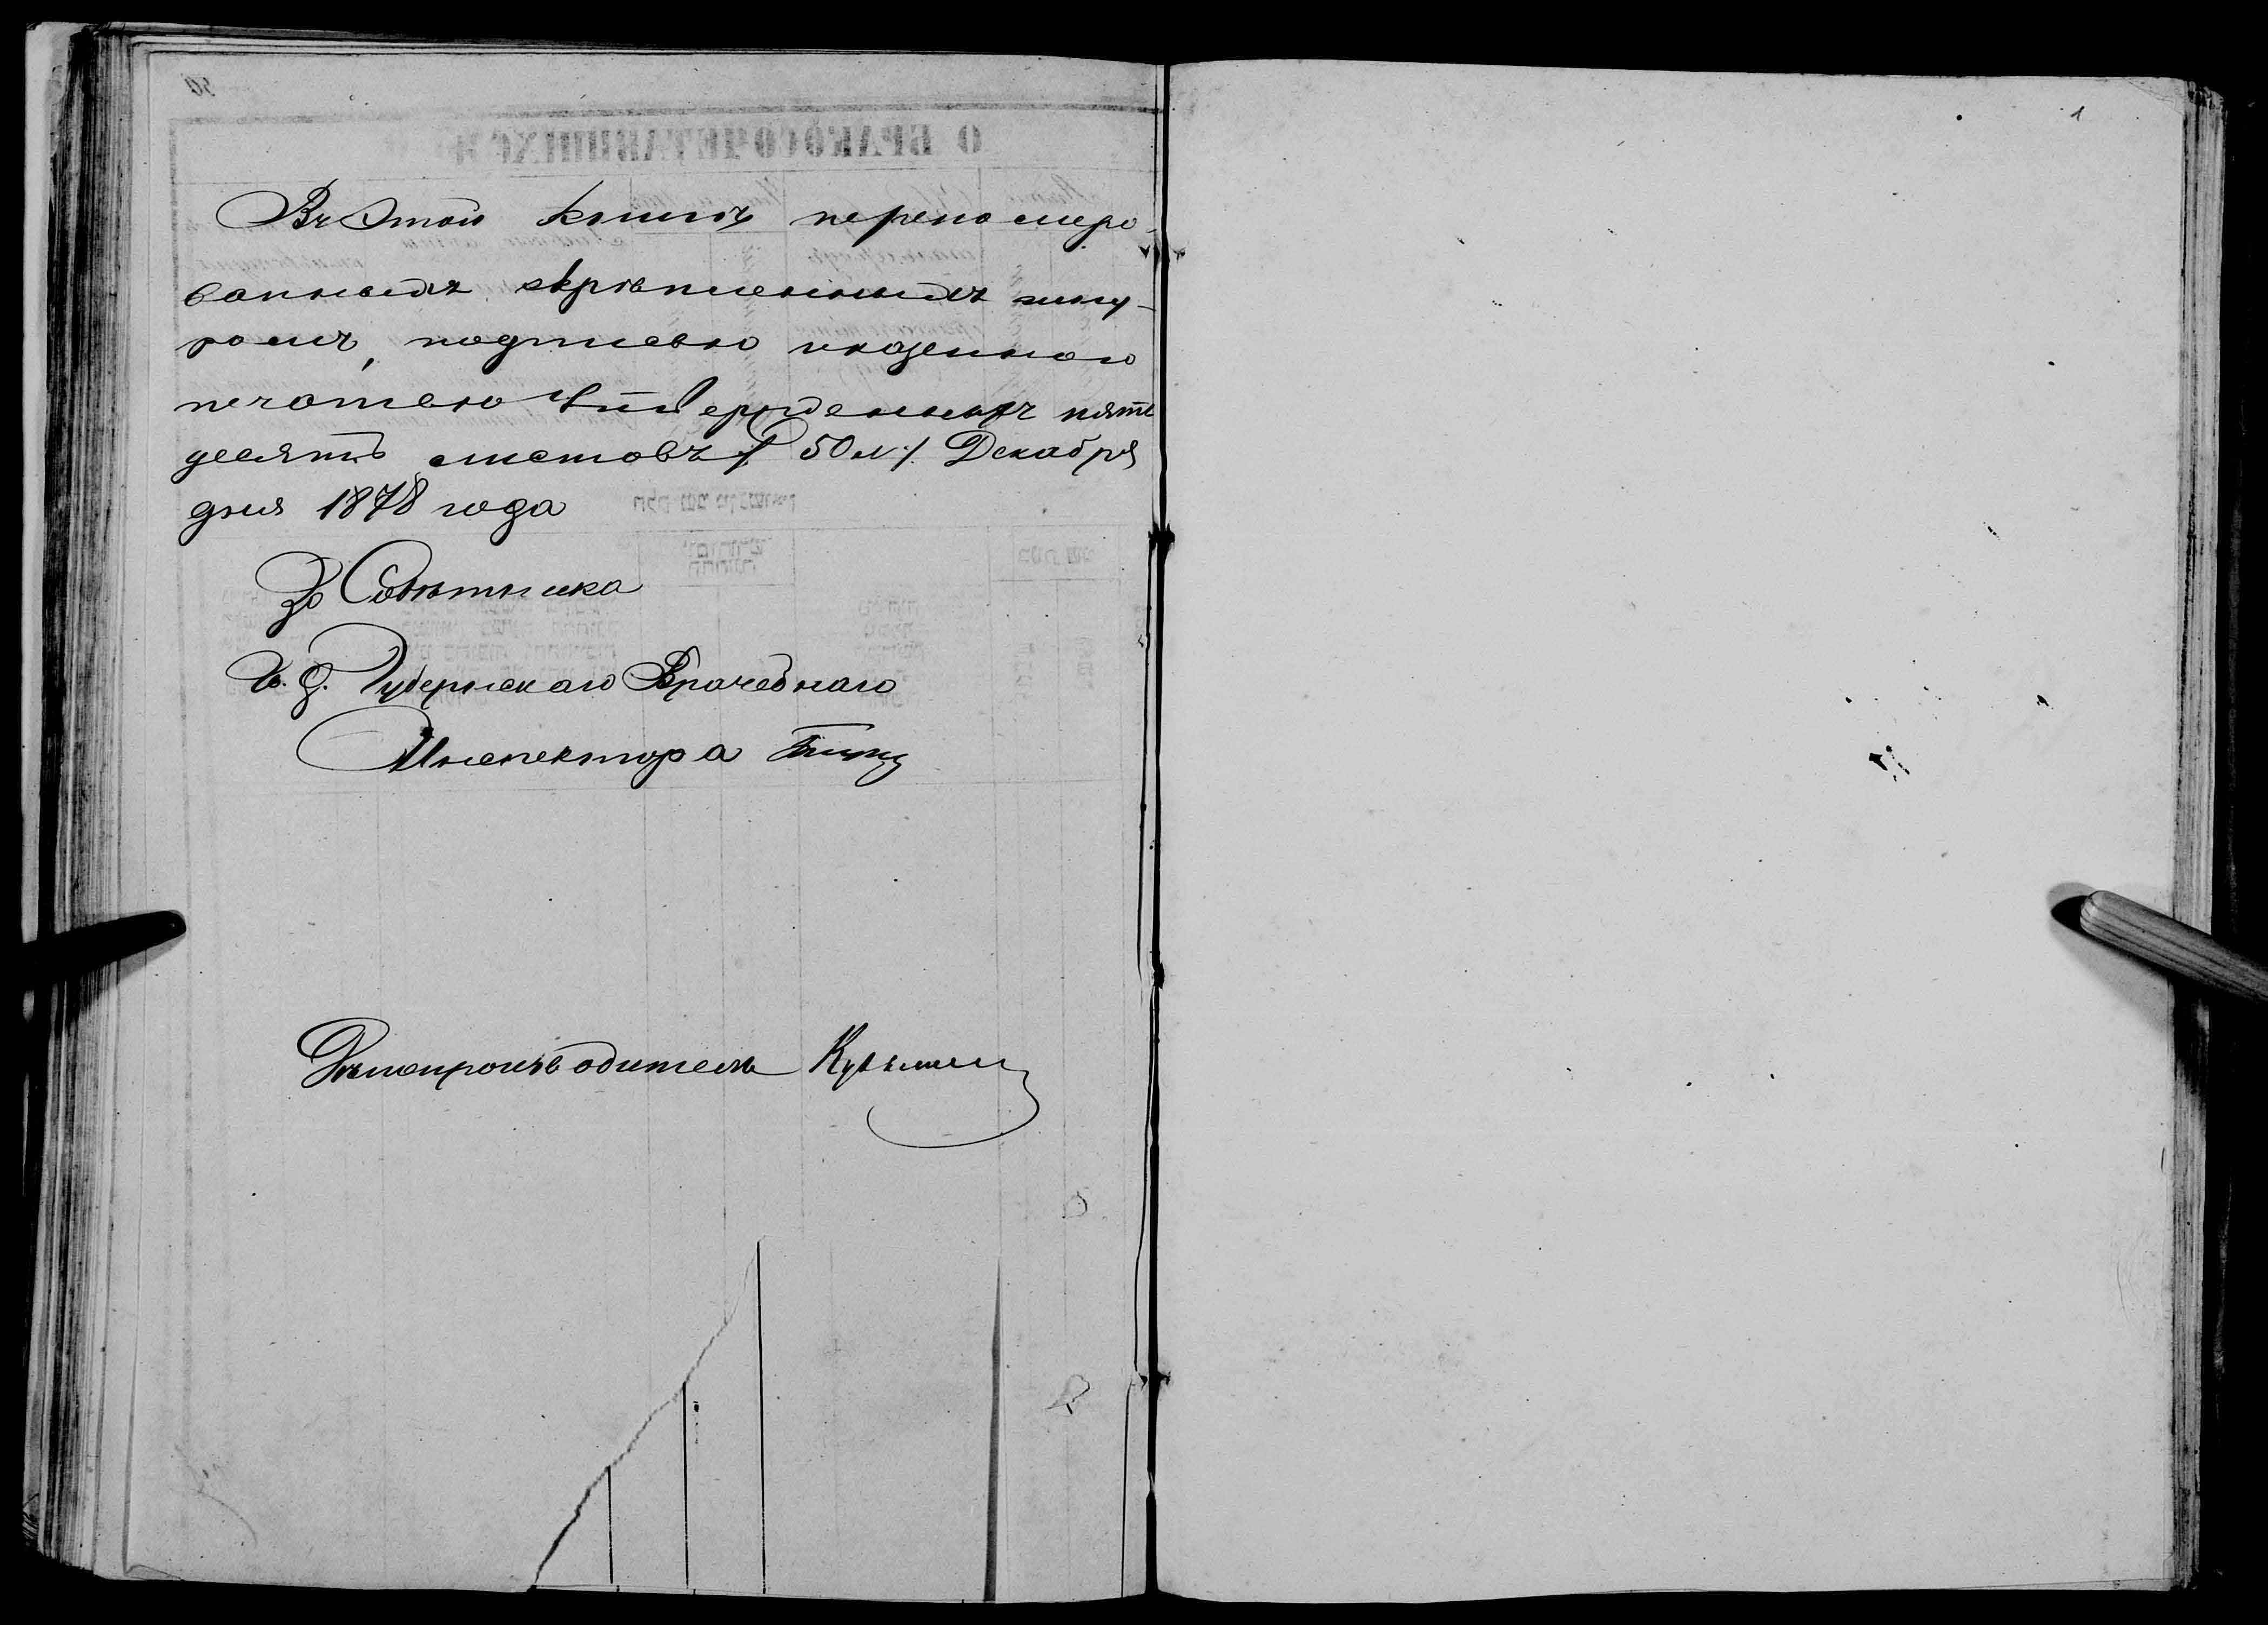 Въ этой книгѣ переномеро-
ванныхъ, скрѣпленныхъ шну-
ромъ, подписью и казенною
печатью утвержденныхъ пять
десятъ листовъ /: 50 л :/ Декабря
дня 1878 года
За Совѣтника
И. д. Губернскаго Врачебнаго
Инспектора
Дѣлопроизводитель
1